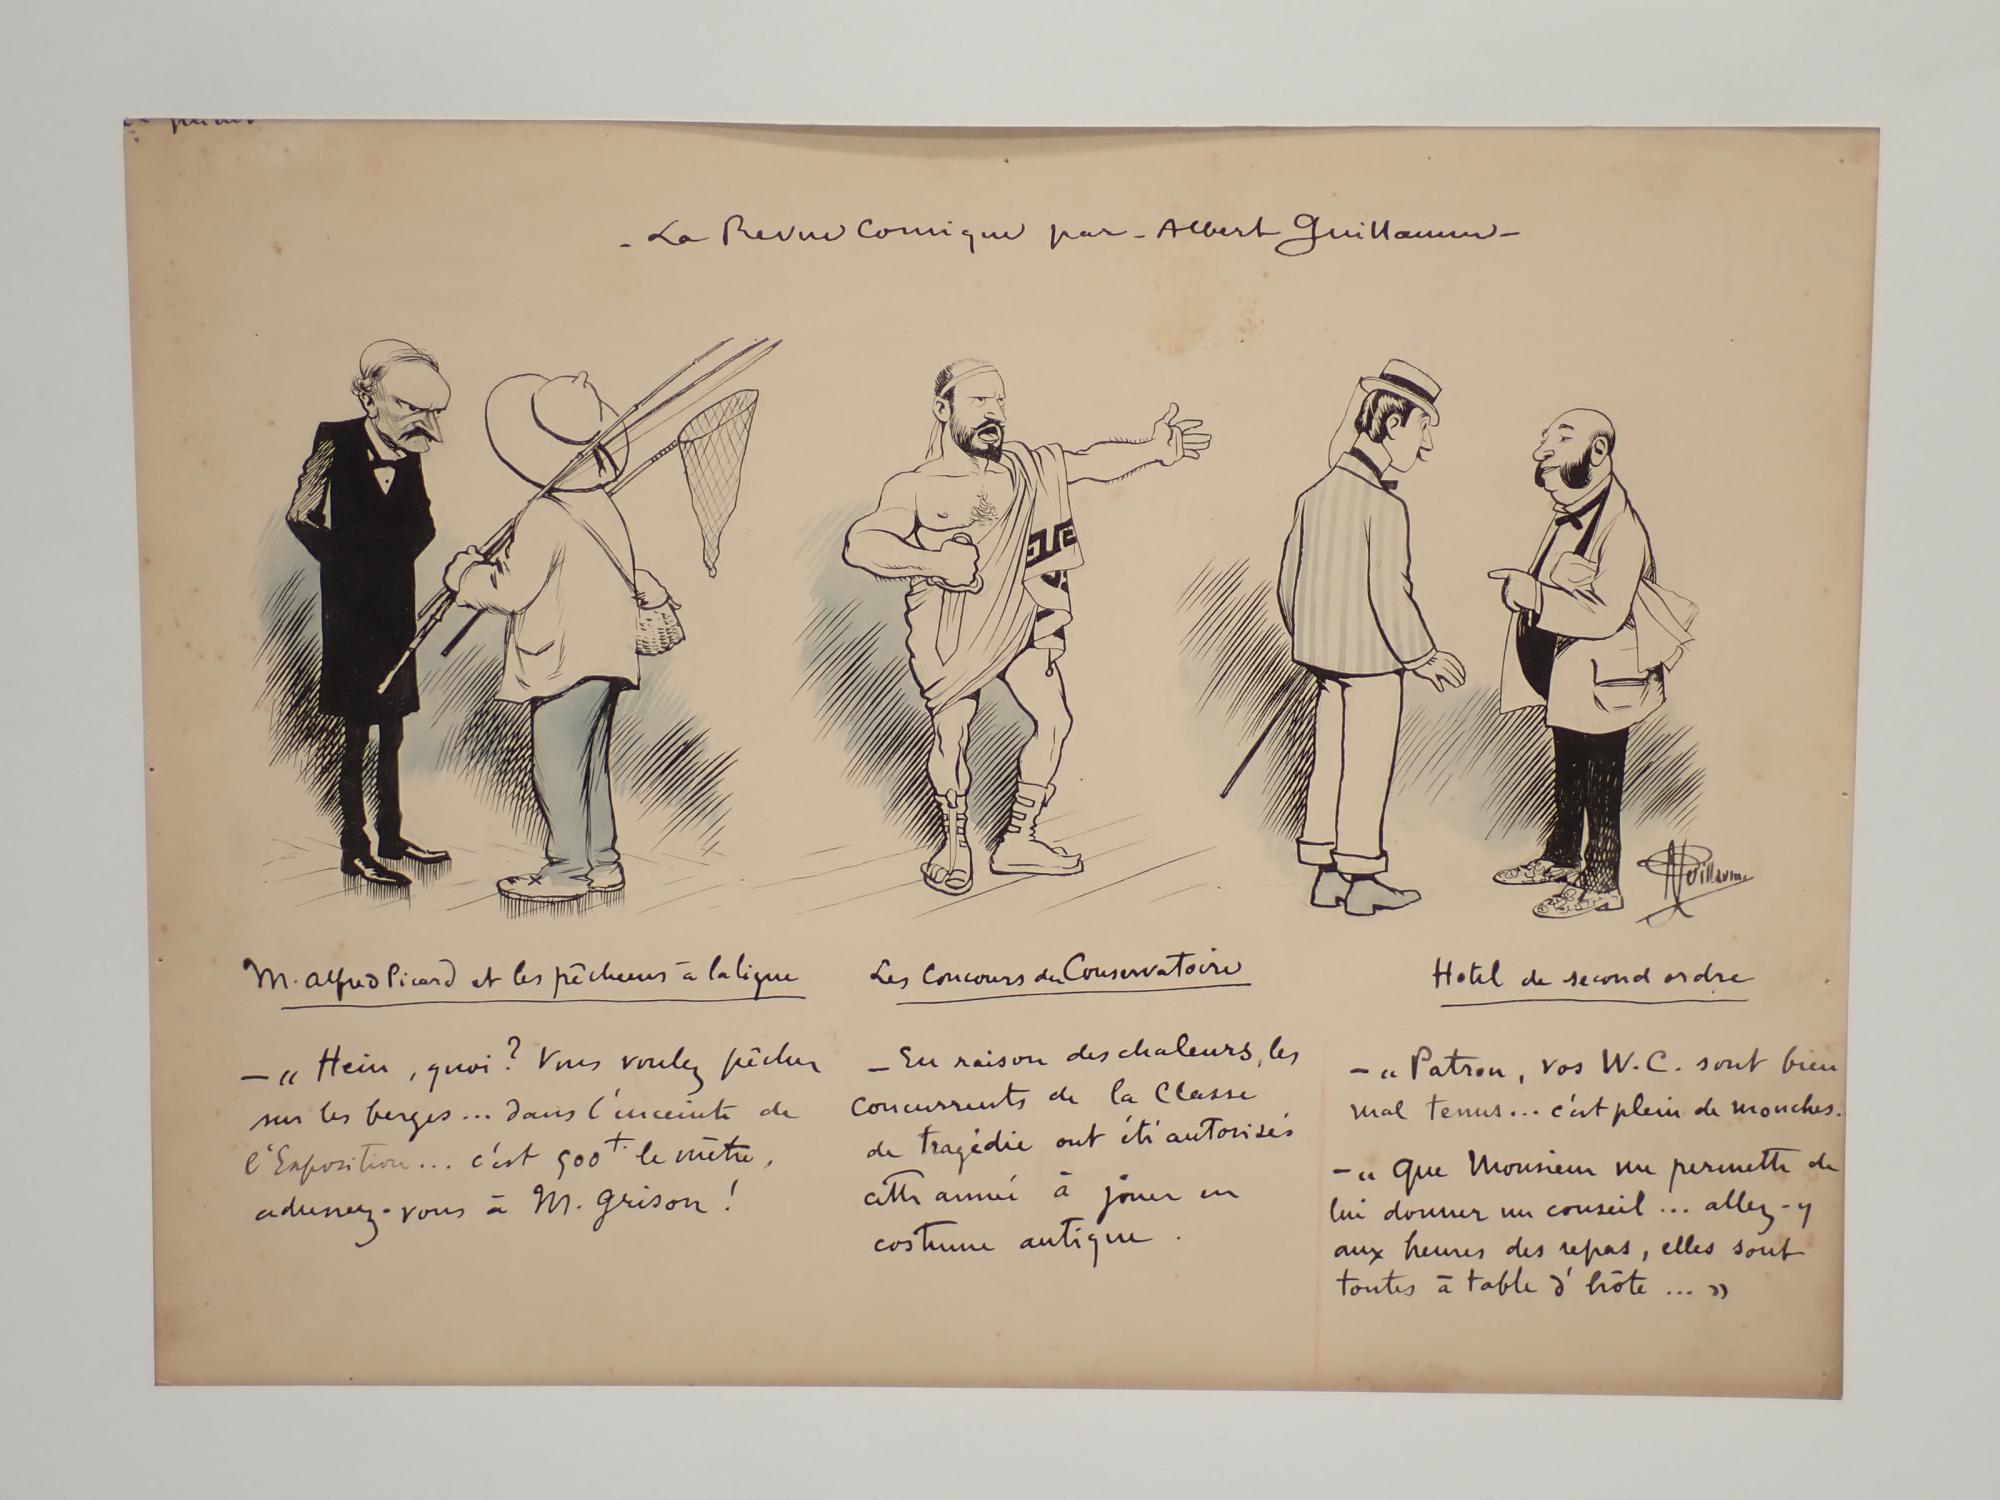 - La Revue Comique par - Albert Guillaume -
M. Alfred Picard et les pêcheurs à la ligne
- « Hein, quoi? Vous voulez pêcher
sur les berges... dans l'enceinte de
l'Exposition... c'est 500f le mètre,
adressez-vous à M. Grison!
Les Concours du Conservatoire
- En raison des chaleurs, les
concurrents de la Classe
de tragédie ont été autorisés
cette année à jouer en
costume antique.
Hotel de second ordre
- « Patron, vos W.C. sont bien
mal tenus... c'est plein de mouches.
- « Que Monsieur me permette de
lui donner un conseil... allez-y
aux heures des repas, elles sont
toutes à table d'hôte... »
A Guillaume